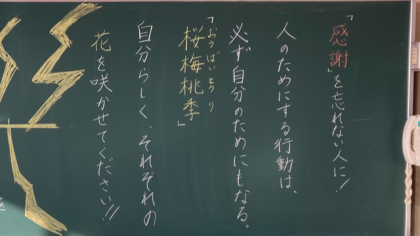 「感謝」を忘れない人に！
人のためにする行動は、
必ず自分のためにもなる。
「おうばいとうり
桜梅桃李」
自分らしく、それぞれの
花を咲かせてください!!